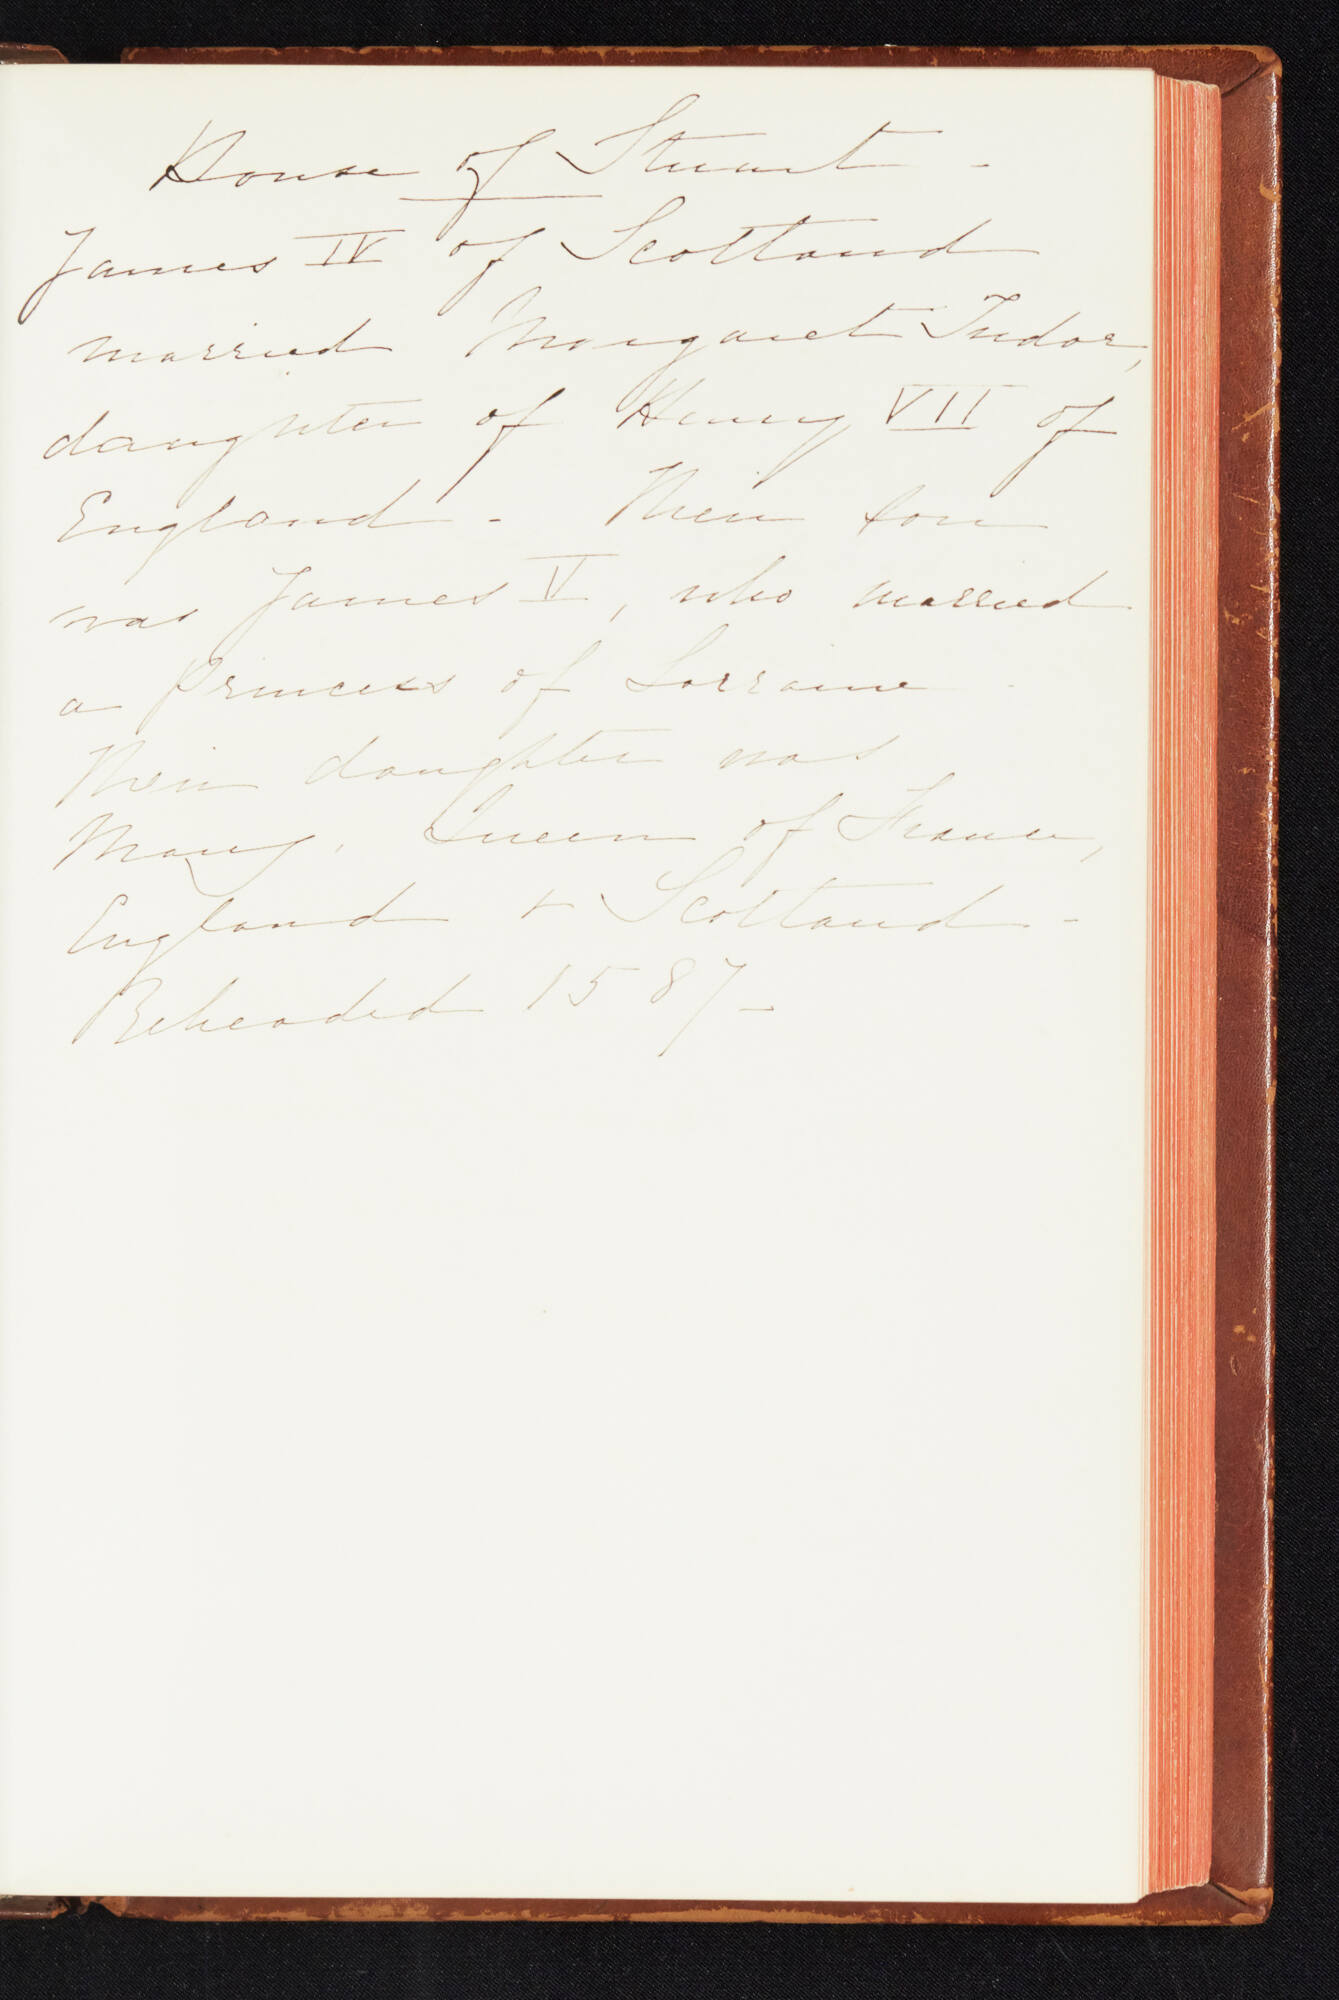 House of Stuart -
James IV of Scotland
married Margaret Tudor,
daughter of Henry VII of
England - Their son
was James V, who married
a Princess of Lorraine -
Their daughter was
Mary, Queen of France,
England + Scotland -
Beheaded 1587 -